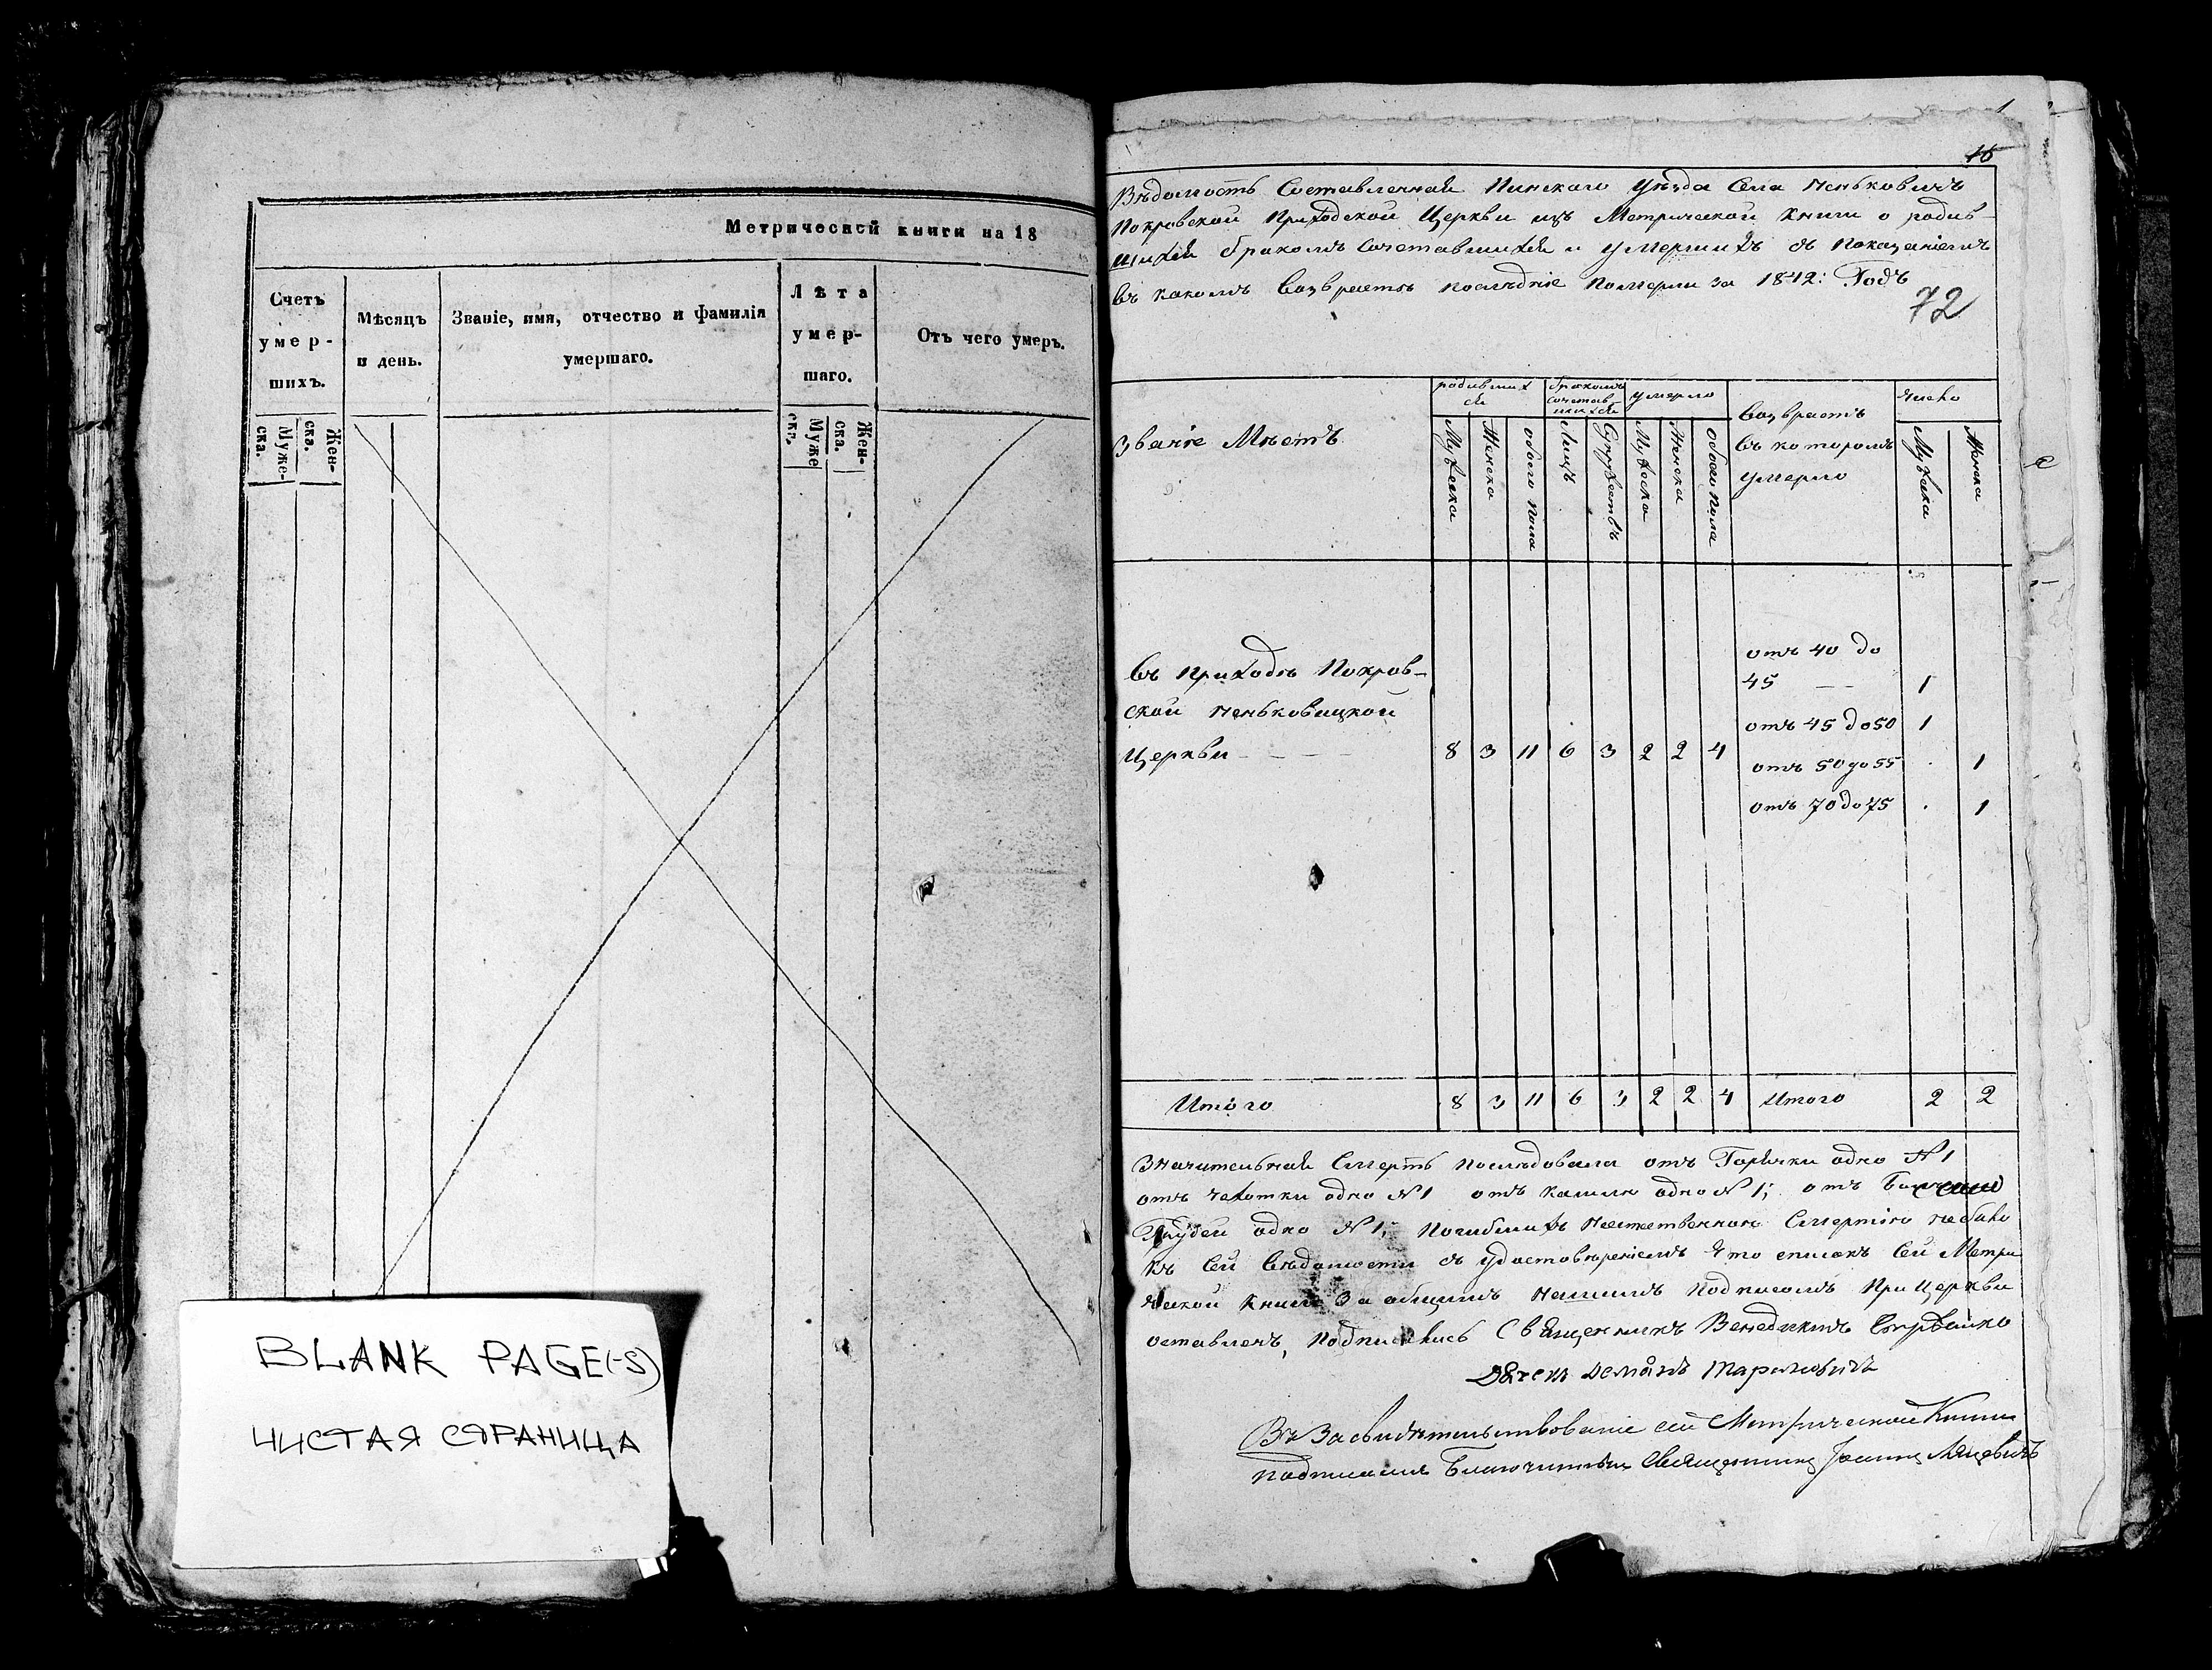 Метрической книги на 18
Счетъ умер- шихъ.
Мѣсяцъ и день.
Званіе, имя, отчество и фамилія умершаго.
Лѣта умер- шаго.
Отъ чего умеръ.
Муже- ска.
Жен- ска.
Муже ска.
Жен- ска.
BLANK PAGE(-S)
ЧИСТАЯ СТРАНИЦА
1
16
Вѣдомость Составленная Пинскаго Уѣзда Села Неньковичъ
Покровской Приходской Церкви изъ Метрической Книги о родив-
шихся бракомъ Сочетавшихся и умершихъ съ Показаніемъ
въ какомъ Возврастѣ послѣдніе Померли за 1842: Годъ
72
Званіе Мѣстъ
родивших ся
бракомъ сочетав шихся
умерло
Возврастъ въ которомъ умерло
Число
Мужеска
Женска
обоего пола
Лицъ
Супружествъ
Мужеска
Женска
обоего пола
Мужска
Женска
въ Приходѣ Покров-
ской Неньковицкой
Церкви - - - - 8 3 11 6 3 2 2 4
отъ 40 до
45 - - 1
отъ 45 до 50 1
отъ 50 до 55 . 1
отъ 70 до 75 . 1
Итого 8 3 11 6 3 2 2 4 Итого 2 2
Значительная Смерть послѣдовала отъ Горячки одно N 1
отъ чахотки одно N 1 отъ кашлю одно N 1; отъ
одно N 1; Погибшихъ Смертію небыло
къ Сей Вѣдомости съ удостовѣреніемъ что списокъ Сей Метри
ческой Книги За общимъ Нашимъ Подписомъ При Церкви
оставленъ, Подписались Священникъ Венедиктъ
Дячекъ Демянъ Тариковичъ
Въ Засвидѣтельствованіе сей Метрической Книги
подписался Благочинный Священникъ Іоаннъ Ляцевичъ